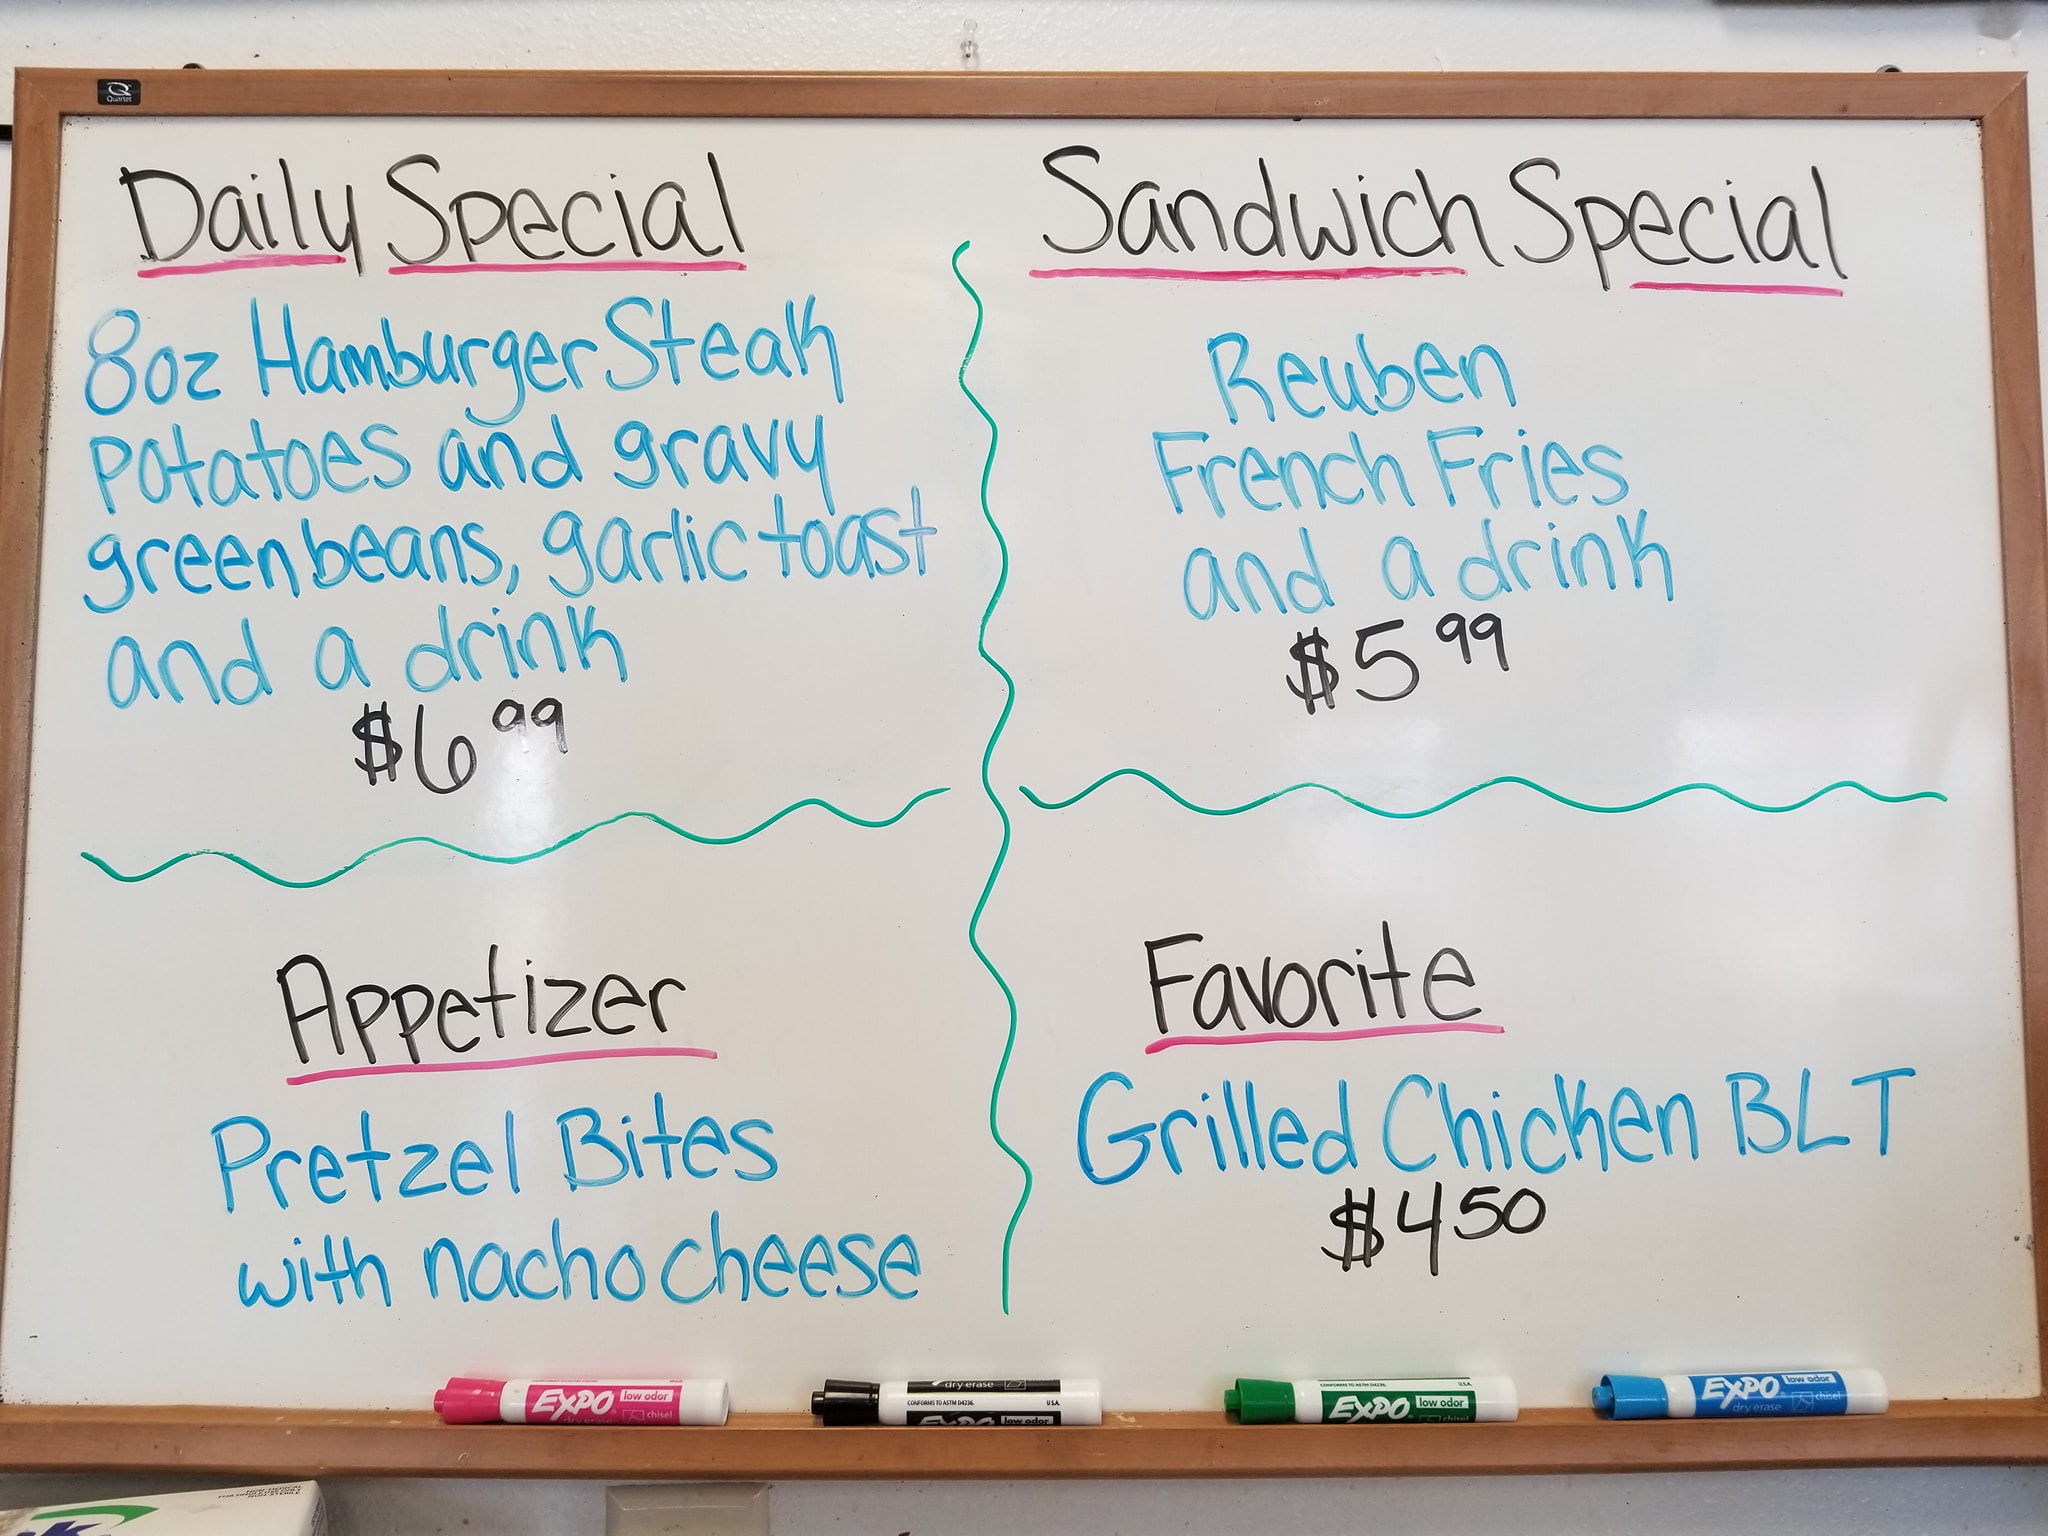 Quartet
Daily Special
8oz Hamburger Steak
potatoes and gravy
green beans, garlic toast
and a drink
$6.99
Sandwich Special
Reuben
French Fries
and a drink
$5.99
Appetizer
Pretzel Bites
with nacho cheese
Favorite
Grilled Chicken BLT
$4.50
EXPO low odor
dry erase chisel
dry erase
CONFORMS TO ASTM D4236. U.S.A.
EXPO low odor
CONFORMS TO ASTM D4236. U.S.A.
EXPO low odor
EXPO low odor
dry erase chisel